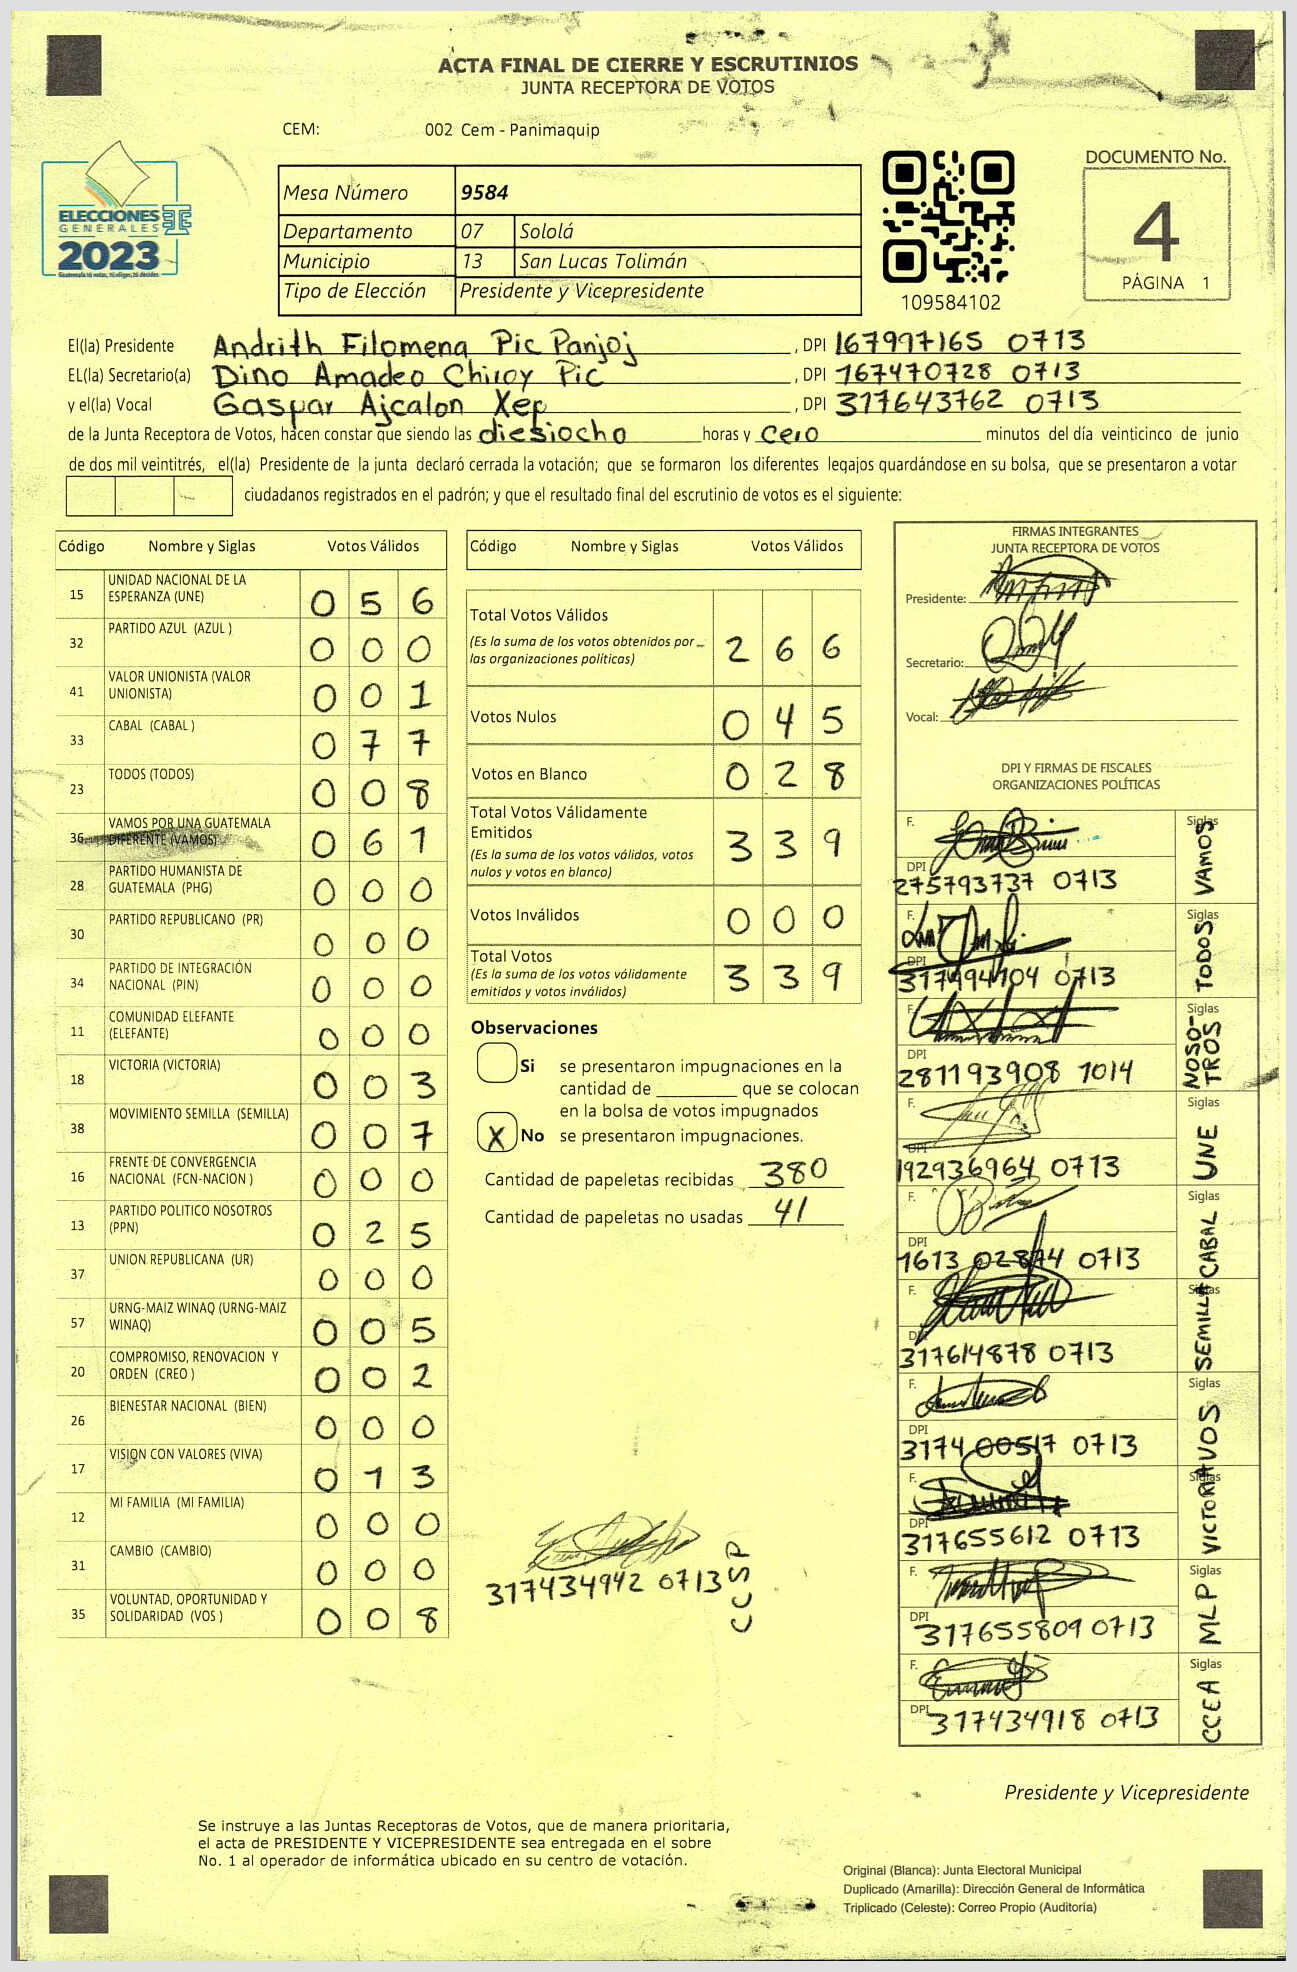 ACTA FINAL DE CIERRE Y ESCRUTINIOS
JUNTA RECEPTORA DE VOTOS
CEM: 002 Cem - Panimaquip
ELECCIONES
GENERALES
2023
Mesa Número 9584
Departamento 07 Sololá
Municipio 13 San Lucas Tolimán
Tipo de Elección Presidente y Vicepresidente
109584102
DOCUMENTO No.
4
PÁGINA 1
El(la) Presidente Andrith Filomena Pic Panjoj, DPI 167997165 0713
EL(la) Secretario(a) Dino Amadeo Chiroy Pic, DPI 167470728 0713
y el(la) Vocal Gaspar Ajcalon Xep, DPI 317643762 0713
de la Junta Receptora de Votos, hacen constar que siendo las diesiocho horas y cero minutos del día veinticinco de junio
de dos mil veintitrés, el(la) Presidente de la junta declaró cerrada la votación; que se formaron los diferentes legajos guardándose en su bolsa, que se presentaron a votar
ciudadanos registrados en el padrón; y que el resultado final del escrutinio de votos es el siguiente:
Código Nombre y Siglas Votos Válidos
15 UNIDAD NACIONAL DE LA ESPERANZA (UNE) 0 5 6
32 PARTIDO AZUL (AZUL ) 0 0 0
41 VALOR UNIONISTA (VALOR UNIONISTA) 0 0 1
33 CABAL (CABAL ) 0 7 7
23 TODOS (TODOS) 0 0 8
36 VAMOS POR UNA GUATEMALA DIFERENTE (VAMOS) 0 6 1
28 PARTIDO HUMANISTA DE GUATEMALA (PHG) 0 0 0
30 PARTIDO REPUBLICANO (PR) 0 0 0
34 PARTIDO DE INTEGRACIÓN NACIONAL (PIN) 0 0 0
11 COMUNIDAD ELEFANTE (ELEFANTE) 0 0 0
18 VICTORIA (VICTORIA) 0 0 3
38 MOVIMIENTO SEMILLA (SEMILLA) 0 0 7
16 FRENTE DE CONVERGENCIA NACIONAL (FCN-NACION ) 0 0 0
13 PARTIDO POLITICO NOSOTROS (PPN) 0 2 5
37 UNION REPUBLICANA (UR) 0 0 0
57 URNG-MAIZ WINAQ (URNG-MAIZ WINAQ) 0 0 5
20 COMPROMISO, RENOVACION Y ORDEN (CREO ) 0 0 2
26 BIENESTAR NACIONAL (BIEN) 0 0 0
17 VISION CON VALORES (VIVA) 0 1 3
12 MI FAMILIA (MI FAMILIA) 0 0 0
31 CAMBIO (CAMBIO) 0 0 0
35 VOLUNTAD, OPORTUNIDAD Y SOLIDARIDAD (VOS ) 0 0 8
Código Nombre y Siglas Votos Válidos
Total Votos Válidos 2 6 6
(Es la suma de los votos obtenidos por las organizaciones políticas)
Votos Nulos 0 4 5
Votos en Blanco 0 2 8
Total Votos Válidamente Emitidos 3 3 9
(Es la suma de los votos válidos, votos nulos y votos en blanco)
Votos Inválidos 0 0 0
Total Votos 3 3 9
(Es la suma de los votos válidamente emitidos y votos inválidos)
Observaciones
Si se presentaron impugnaciones en la
cantidad de ________ que se colocan
en la bolsa de votos impugnados
X No se presentaron impugnaciones.
Cantidad de papeletas recibidas 380
Cantidad de papeletas no usadas 41
317434942 0713
CCSP
FIRMAS INTEGRANTES
JUNTA RECEPTORA DE VOTOS
Presidente:
Secretario:
Vocal:
DPI Y FIRMAS DE FISCALES
ORGANIZACIONES POLÍTICAS
F. Siglas VAMOS
DPI 275793737 0713
F. Siglas TODOS
DPI 317494104 0713
F. Siglas NOSO-TROS
DPI 281193908 1014
F. Siglas UNE
DPI 192936964 0713
F. Siglas CABAL
DPI 1613 02874 0713
F. Siglas SEMILLA
DPI 317614878 0713
F. Siglas VOS
DPI 3174 00517 0713
F. Siglas VICTORIA
DPI 317655612 0713
F. Siglas MLP
DPI 317655809 0713
F. Siglas CCEA
DPI 317434918 0713
Presidente y Vicepresidente
Se instruye a las Juntas Receptoras de Votos, que de manera prioritaria,
el acta de PRESIDENTE Y VICEPRESIDENTE sea entregada en el sobre
No. 1 al operador de informática ubicado en su centro de votación.
Original (Blanca): Junta Electoral Municipal
Duplicado (Amarilla): Dirección General de Informática
Triplicado (Celeste): Correo Propio (Auditoría)